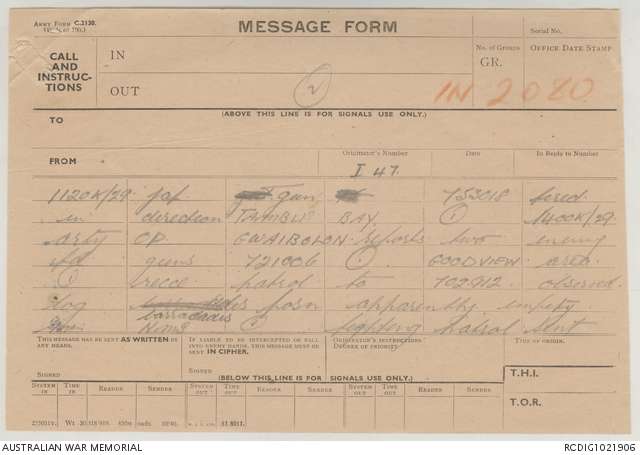 ARMY FORM C.2130.
MESSAGE FORM
Serial No.
CALL
AND
INSTRUC-
TIONS
IN
OUT
No. of Groups
GR.
OFFICE DATE STAMP
2
IN 2080
(ABOVE THIS LINE IS FOR SIGNALS USE ONLY.)
TO
FROM
Originator's Number
Date
In Reply to Number
I 47.
1120K/29 gun 753018 fired
in direction TAMBUT BAY (.) 1400K/29
arty OP. GWAIBOLON reports two enemy
fd guns 721006 (.) GOODVIEW area.
(.) recce patrol to 702912 observed
log posn apparently empty
barracades
(.) fighting patrol sent
THIS MESSAGE MAY BE SENT AS WRITTEN BY
ANY MEANS.
IF LIABLE TO BE INTERCEPTED OR FALL
INTO ENEMY HANDS, THIS MESSAGE MUST BE
SENT IN CIPHER.
ORIGINATOR'S INSTRUCTIONS
DEGREE OF PRIORITY
TIME OF ORIGIN.
SIGNED
SIGNED
(BELOW THIS LINE IS FOR SIGNALS USE ONLY.)
T.H.I.
SYSTEM IN
TIME IN
READER
SENDER
SYSTEM OUT
TIME OUT
READER
SENDER
SYSTEM OUT
TIME OUT
READER
SENDER
T.O.R.
AUSTRALIAN WAR MEMORIAL
RCDIG1021906